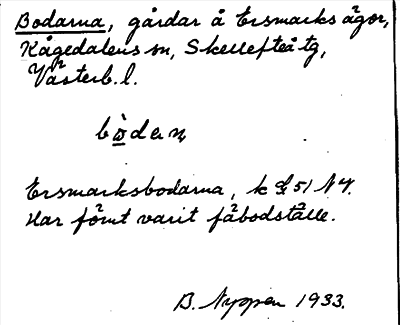 Bodarna, gårdar å Ersmarks ägor,
Kågedalens sn, Skellefteå tg,
Västerb. l.
bò̱dan
Ersmarksbodarna, k bl 51 NV.
Har förut varit fäbodställe.
B. Nyman 1933.